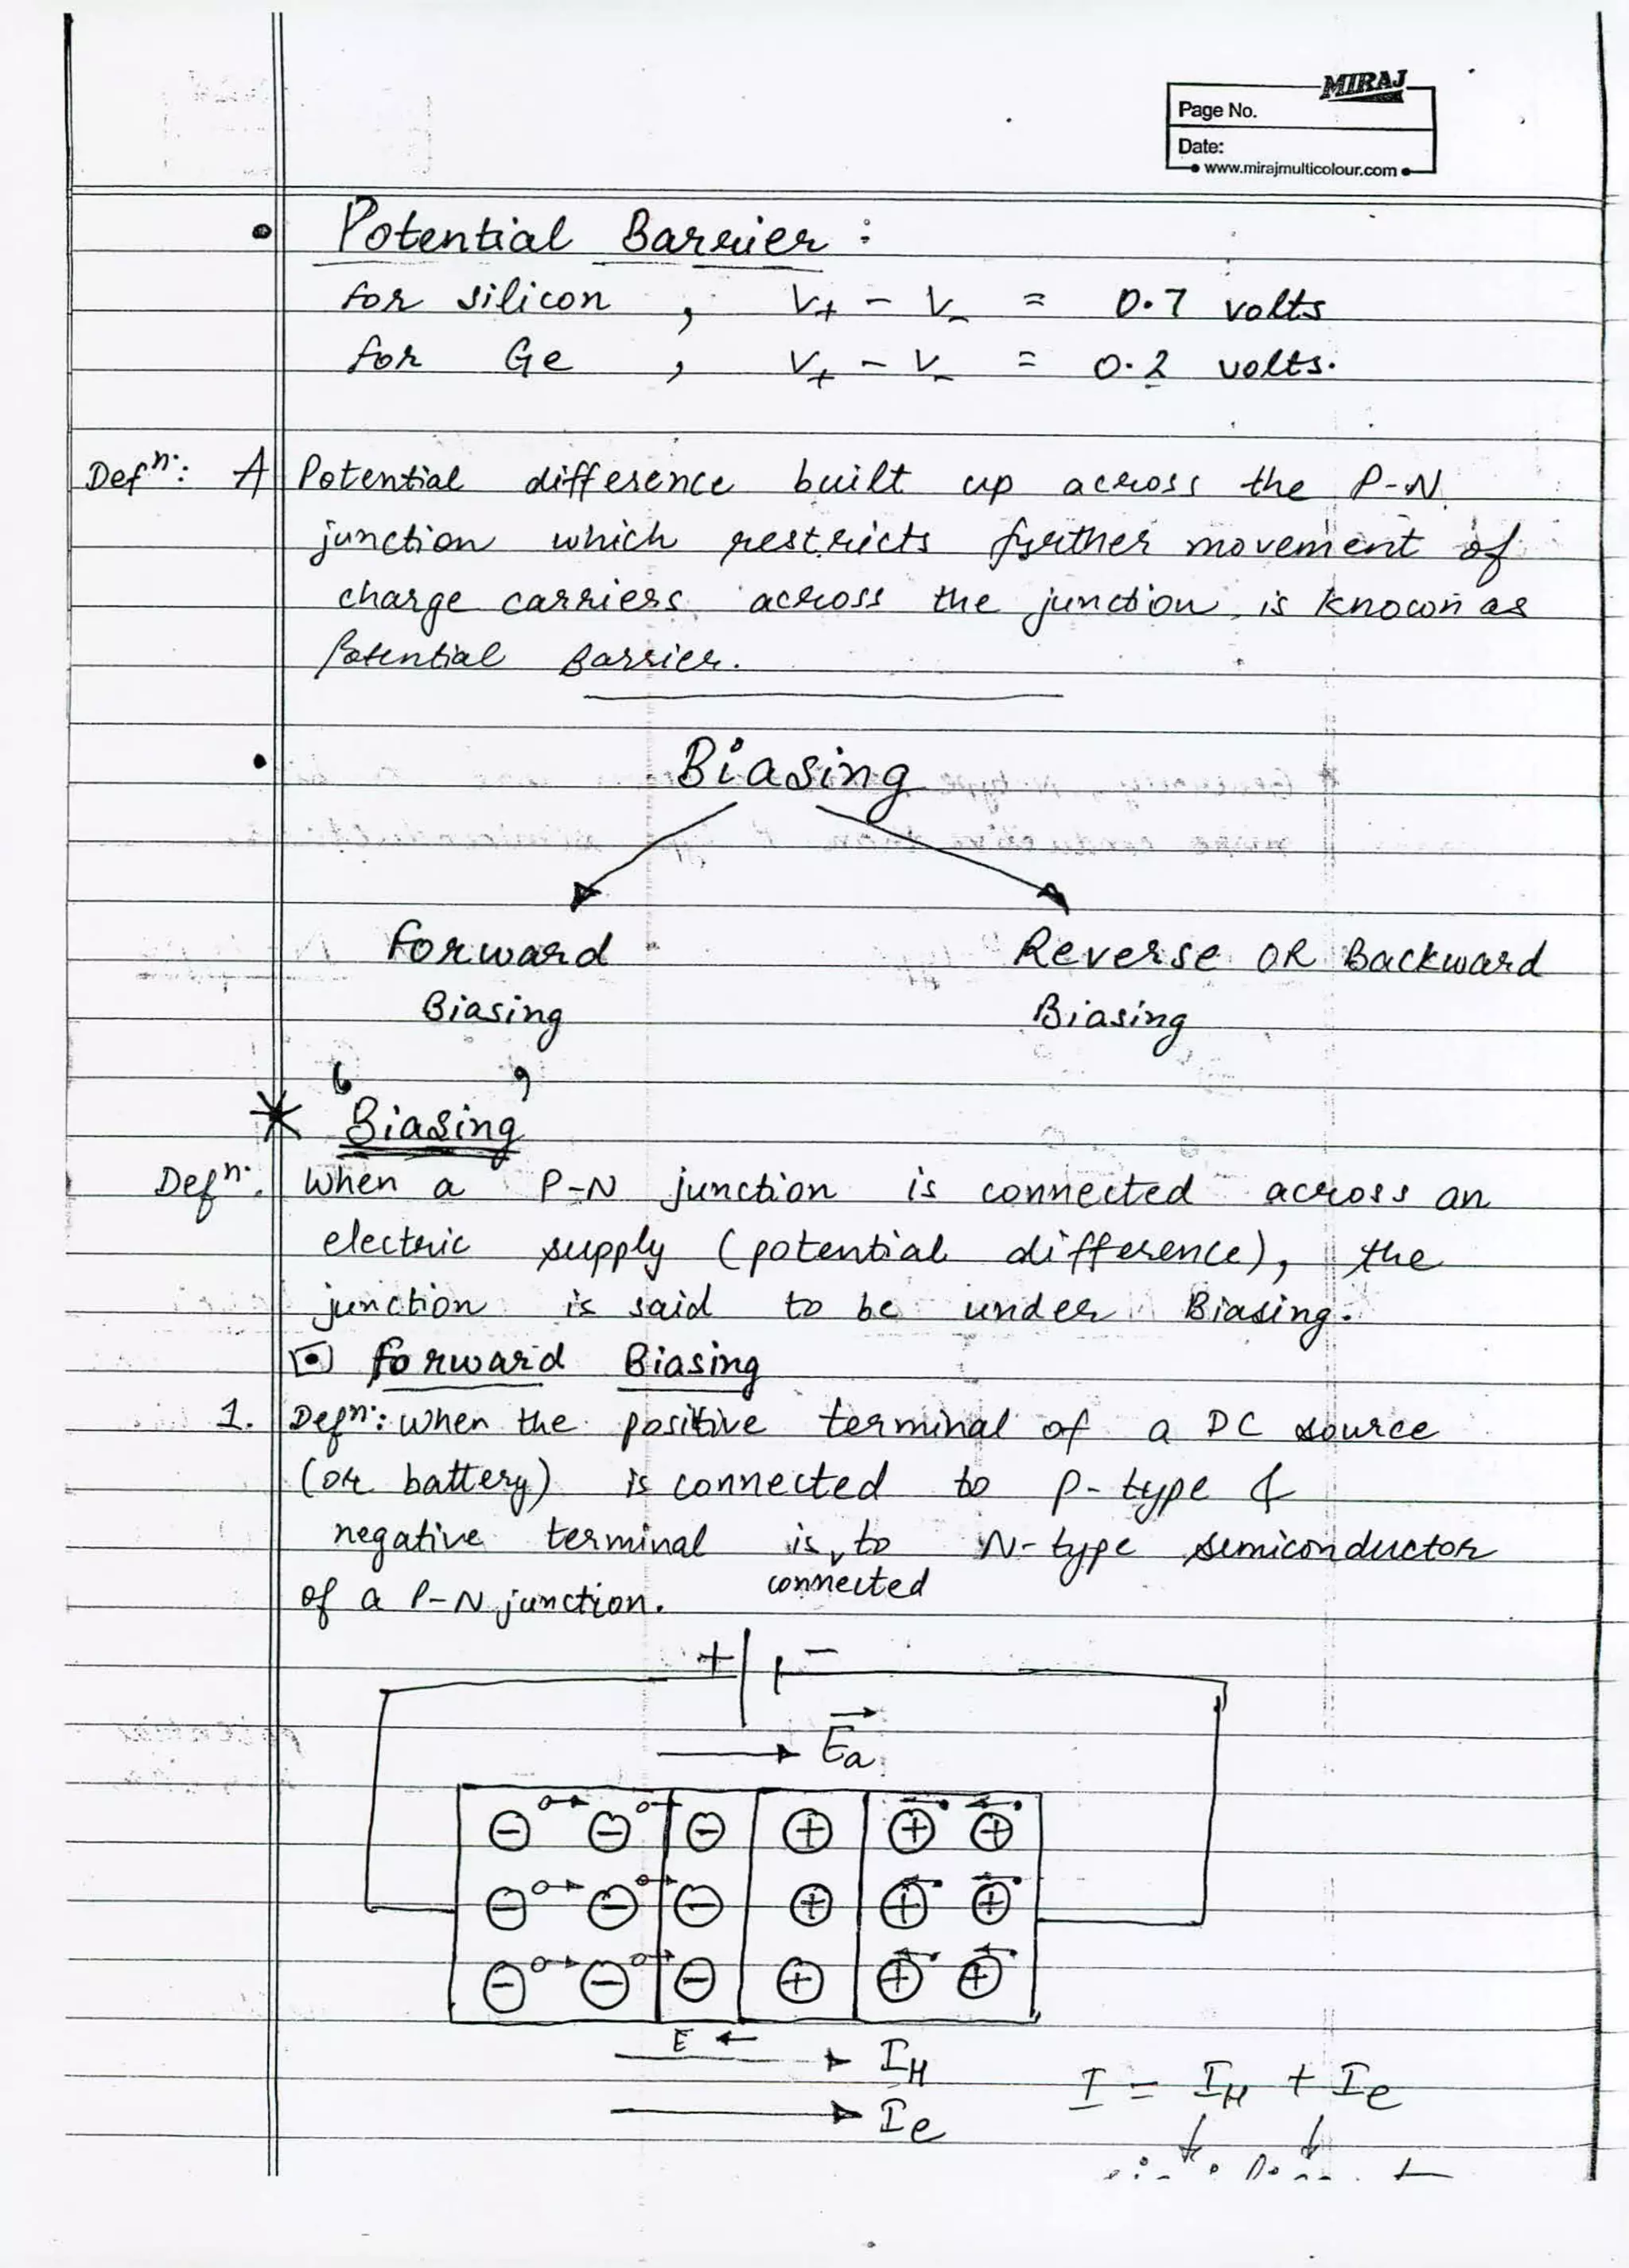 MIRAJ
Page No.
Date:
www.mirajmulticolour.com
Potential Barrier :
for silicon , V+ - V- = 0.7 volts
for Ge , V+ - V- = 0.2 volts.
Defn: A Potential difference built up across the P-N
junction which restricts further movement of
charge carriers across the junction is known as
Potential Barrier.
Biasing
Forward Reverse OR Backward
Biasing Biasing
* 'Biasing'
Defn. When a P-N junction is connected across an
electric supply (potential difference), the
junction is said to be under Biasing.
forward Biasing
1. Defn: when the positive terminal of a DC source
(or battery) is connected to p-type &
negative terminal is to N-type semiconductor
connected
of a P-N junction.
+ -
Ea
- - - + + +
- - - + + +
- - - + + +
E ←
IH
Ie
I = IH + Ie